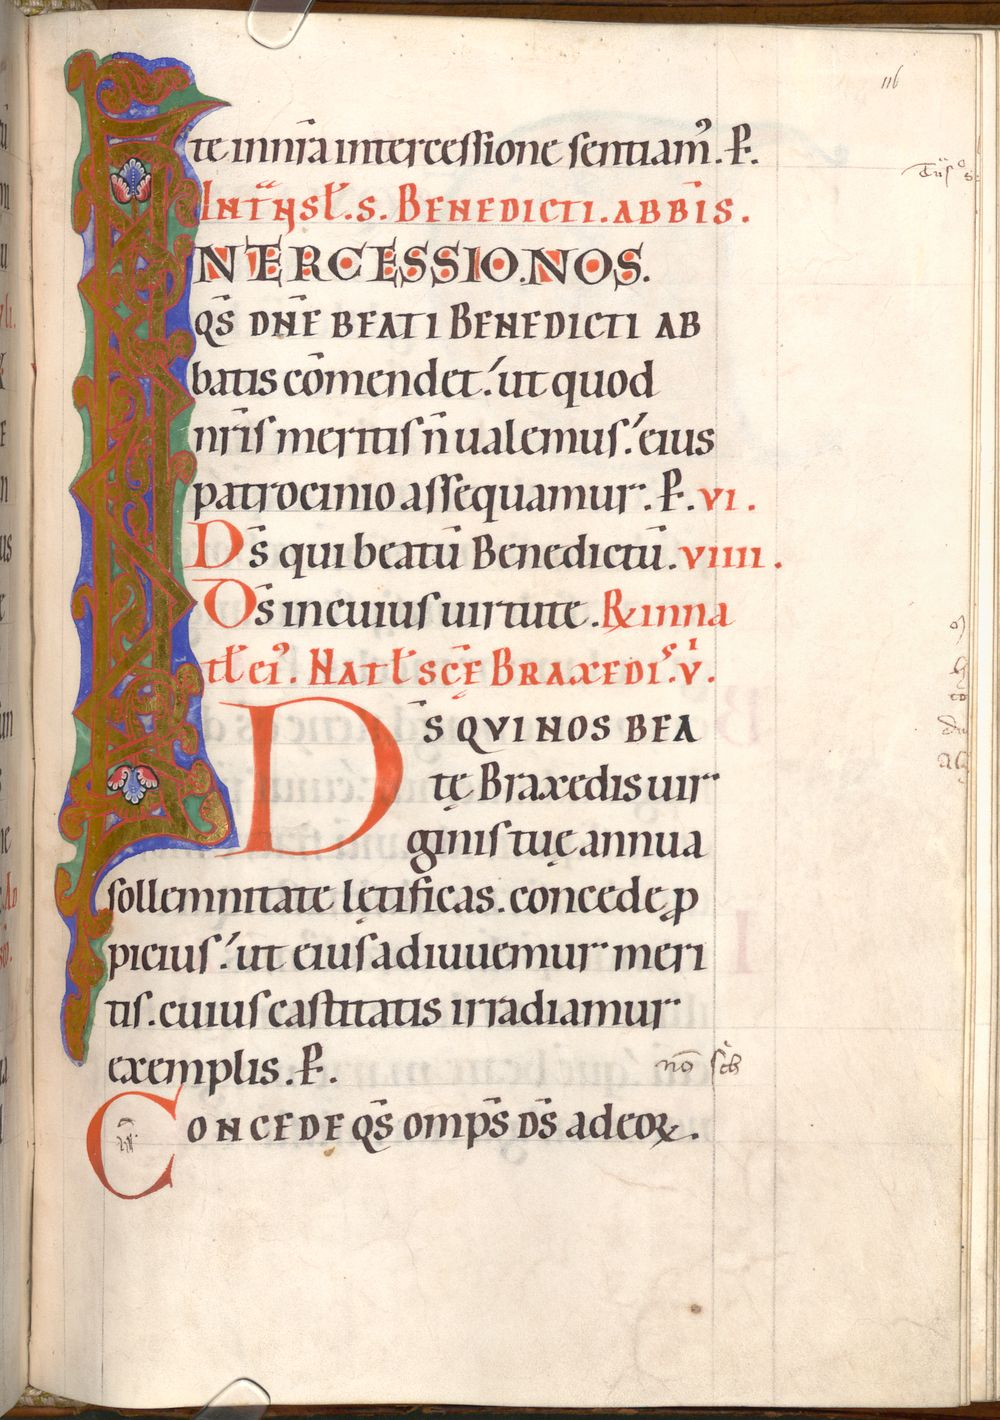 116
te in nr̄a intercessione sentiam᷒. P̵.
INTR̄NSL̄. S. BENEDICTI. ABB̄IS.
INTERCESSIO. NOS.
QS̄ DN̄E BEATI BENEDICTI AB
batis cōmendet. ut quod
nr̄is meritis n̄ ualemus. eius
patrocinio assequamur. P̵. VI.
Ds̄ qui beatū Benedictū. VIIII.
Ds̄ in cuius uirtute. R in na
tł ei᷒. NATł SCĘ̄ BRAXEDIS. V.
DS̄ QVI NOS BEA
tę Braxedis uir
ginis tuę annua
sollemnitate lętificas. concede ꝓ
picius. ut eius adiuuemur meri
tis. cuius castitatis irradiamur
exemplis. P̵.
CONCEDE QS̄ omps̄ DS̄ adeoꝝ.